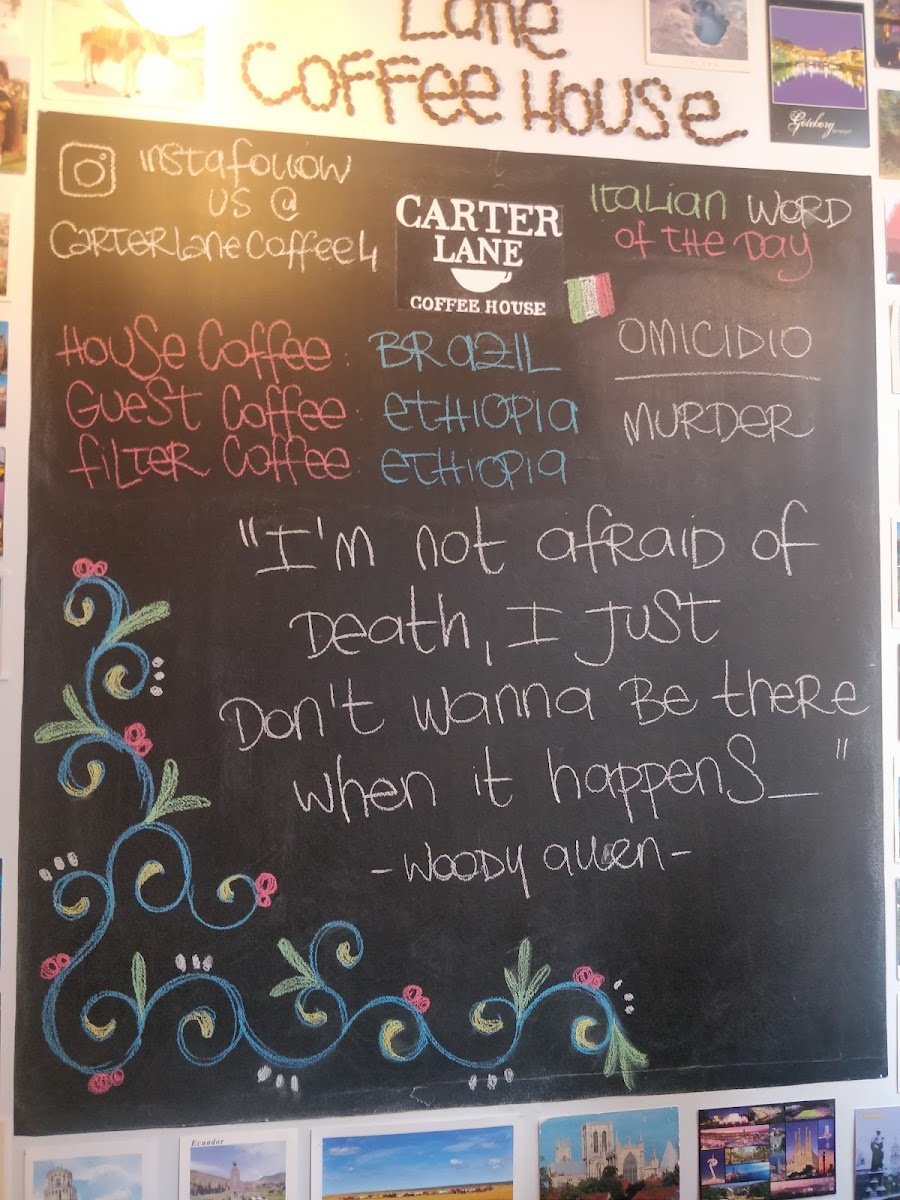 Lane
Coffee House
Göteborg
Instafollow
us @
Carterlanecoffee4
CARTER
LANE
COFFEE HOUSE
Italian Word
of the Day
OMICIDIO
MURDER
House Coffee: BRAZIL
Guest Coffee: ETHIOPIA
Filter Coffee: ETHIOPIA
"I'm not afraid of
Death, I just
Don't wanna Be there
when it happens_"
-Woody Allen-
Ecuador